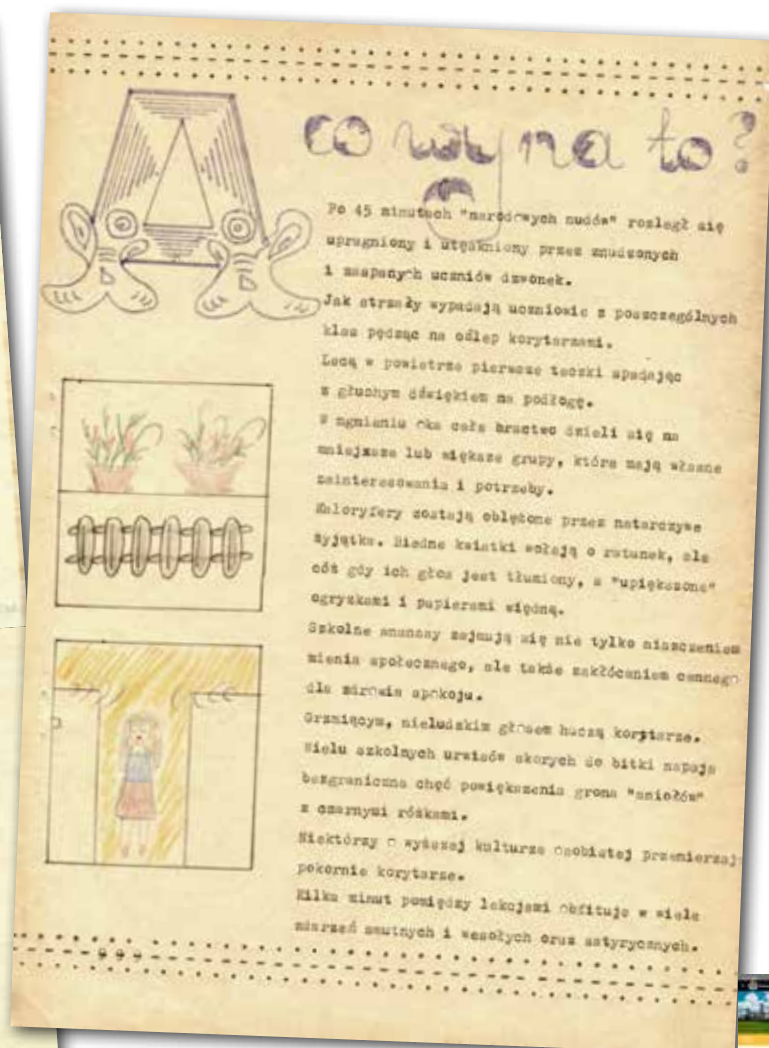 A co wy na to?
Po 45 minutach "narodowych nudów" rozległ się
upragniony i utęskniony przez znudzonych
i zaspanych uczniów dzwonek.
Jak strzały wypadają uczniowie z poszczególnych
klas pędząc na oślep korytarzami.
Lecą w powietrze pierwsze teczki spadając
z głuchym dźwiękiem na podłogę.
W mgnieniu oka całe bractwo dzieli się na
mniejsze lub większe grupy, które mają własne
zainteresowania i potrzeby.
Kaloryfery zostają oblężone przez natarczywe
żyjątka. Biedne kwiatki wołają o ratunek, ale
cóż gdy ich głos jest tłumiony, a "upiększone"
ogryzkami i papierami więdną.
Szkolne ananasy zajmują się nie tylko niszczeniem
mienia społecznego, ale także zakłócaniem cennego
dla zdrowia spokoju.
Grzmiącym, nieludzkim głosem huczą korytarze.
Wielu szkolnych urwisów skorych do bitki napaja
bezgraniczna chęć powiększenia grona "aniołów"
z czarnymi różkami.
Niektórzy o wyższej kulturze osobistej przemierzają
pokornie korytarze.
Kilka minut pomiędzy lekcjami obfituje w wiele
zdarzeń smutnych i wesołych oraz satyrycznych.